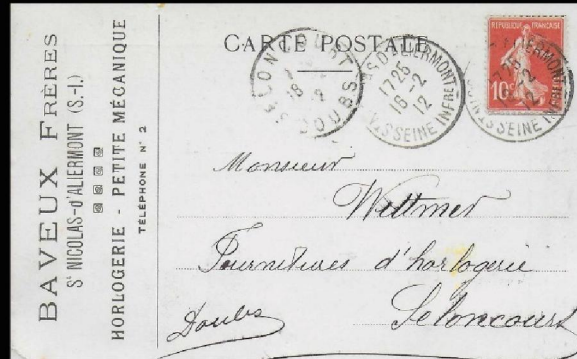 BAVEUX FRÈRES
St NICOLAS-d'ALIERMONT (S.-I.)
HORLOGERIE - PETITE MÉCANIQUE
TÉLÉPHONE N° 2
CARTE POSTALE
SELONCOURT
DOUBS
St NICOLAS D'ALIERMONT
1725
16-2
12
SEINE INFRE
REPUBLIQUE FRANÇAISE
10c
Monsieur
Wittmer
Fournitures d'horlogerie
Seloncourt
Doubs